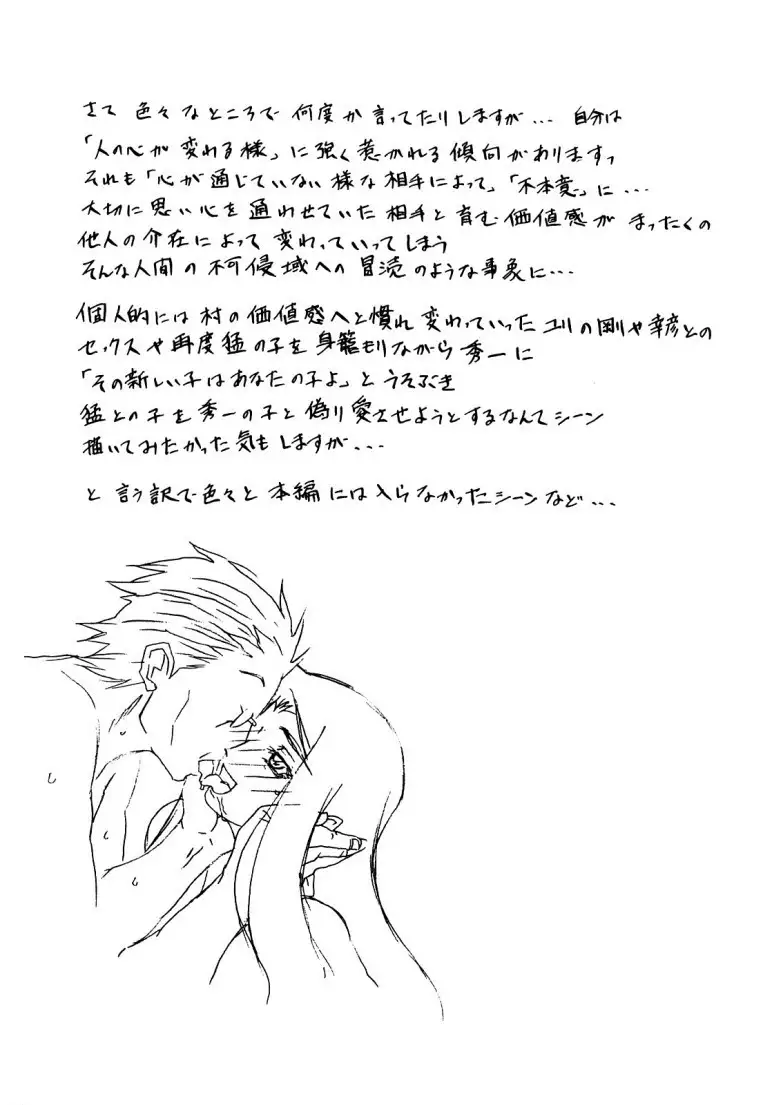 さて 色々なところで 何度か言ってたりしますが... 自分は
「人の心が変わる様」に強く惹かれる傾向がありますっ
それも「心が通じていない様な相手によって」「不本意」に...
大切に思い心を通わせていた相手と育む価値感が まったくの
他人の介在によって変わっていってしまう
そんな人間の不可侵域への冒涜のような事象に...
個人的には村の価値感へと慣れ変わっていったユリの剛や幸彦との
セックスや再度猛の子を身籠もりながら秀一に
「その新しい子はあなたの子よ」とうそぶき
猛との子を秀一の子と偽り愛させようとするなんてシーン
描いてみたかった気もしますが...
と言う訳で色々と本編には入らなかったシーンなど...